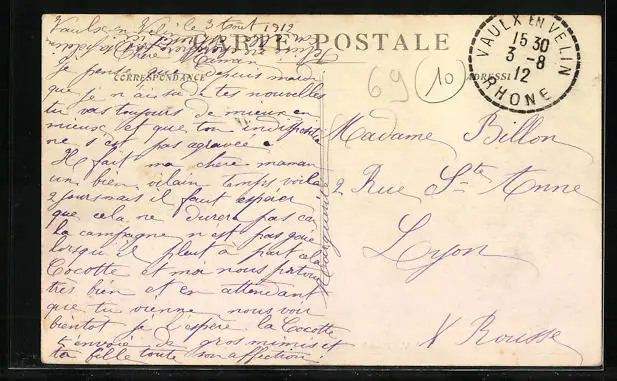 Vaulx en V. le 3 Août 1912
CARTE POSTALE
Chère Maman
CORRESPONDANCE
ADRESSE
je pense que depuis mardi
que je n'ai su de tes nouvelles
tu vas toujours de mieux en
mieux et que ton indisposition
ne s'est pas agravée
Il fait ma chère maman
un bien vilain temps voila
2 jours mais il faut espérer
que cela ne durera pas car
la campagne n'est pas gaie
lorsqu'il pleut à part cela
Cocotte et moi nous portons
très bien et en attendant
que tu vienne nous voir
bientot je l'espère la Cocotte
t'envoie de gros mimis et
ta fille toute son affection
Marguerite
69 10
VAULX EN VELIN
15 30
3 -8
12
RHONE
Madame Billon
2 Rue Ste Anne
Lyon
X Rousse